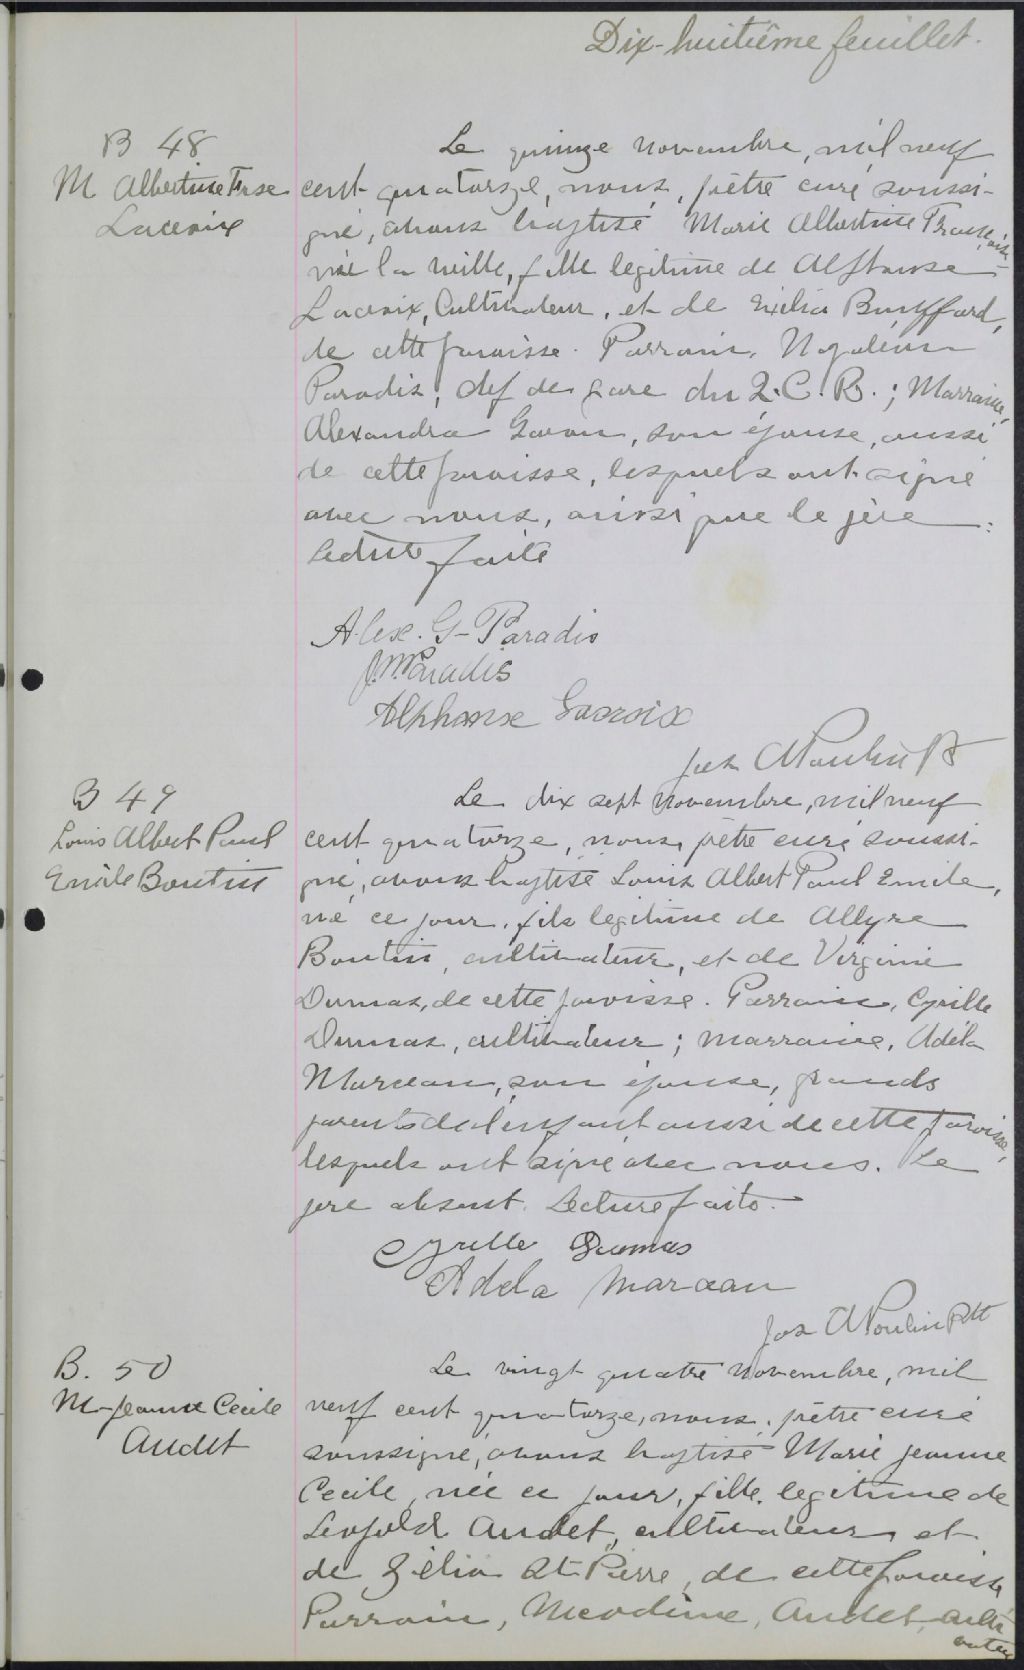 Dix-huitième feuillet.
B 48
M Albertine Frse
Lacroix
Le quinze novembre, mil neuf
cent quatorze, nous, prêtre curé soussi-
gné, avons baptisé Marie Albertine Françoise
née la veille, fille legitime de Alphonse
Lacroix, Cultivateur, et de Exilia
de cette paroisse. Parrain, Napoléon
Paradis, chef de gare du Q.C.R.; Marraine,
Alexandra son épouse, aussi
de cette paroisse, lesquels ont signé
avec nous, ainsi que le père.
Lecture faite
Alex. G-Paradis
J.N. Paradis
Alphonse Lacroix
Jos A Poulin Ptr
B 49
Louis Albert Paul
Emile Boutin
Le dix sept novembre, mil neuf
cent quatorze, nous, prêtre curé soussi-
gné, avons baptisé Louis Albert Paul Emile,
né ce jour, fils legitime de Allyre
Boutin, cultivateur, et de Virginie
Dumas, de cette paroisse. Parrain, Cyrille
Dumas, cultivateur; marraine, Adéla
Marceau, son épouse, grands
parents de l'enfant aussi de cette paroisse,
lesquels ont signé avec nous. Le
père absent. Lecture faite.
Cyrille Dumas
Adela Marceau
Jos A Poulin Ptr
B. 50
M-Jeanne Cecile
Audet
Le vingt quatre novembre, mil
neuf cent quatorze, nous, prêtre curé
soussigné, avons baptisé Marie Jeanne
Cecile, née ce jour, fille legitime de
Leopold Audet, cultivateur, et
de Zélia St-Pierre, de cette paroisse
Parrain, Audet, culti
vateur